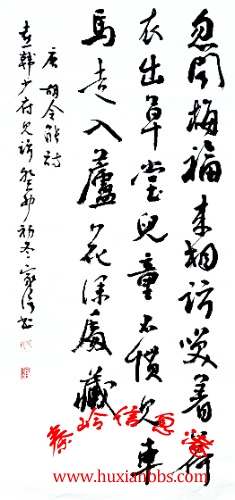 忽闻梅福来相访笑着荷
衣出草堂儿童不惯见车
马走入芦花深处藏
唐 胡令能诗
喜韩少府见访 癸卯初冬 家信书
秦岭信息港
www.huxianbbs.com